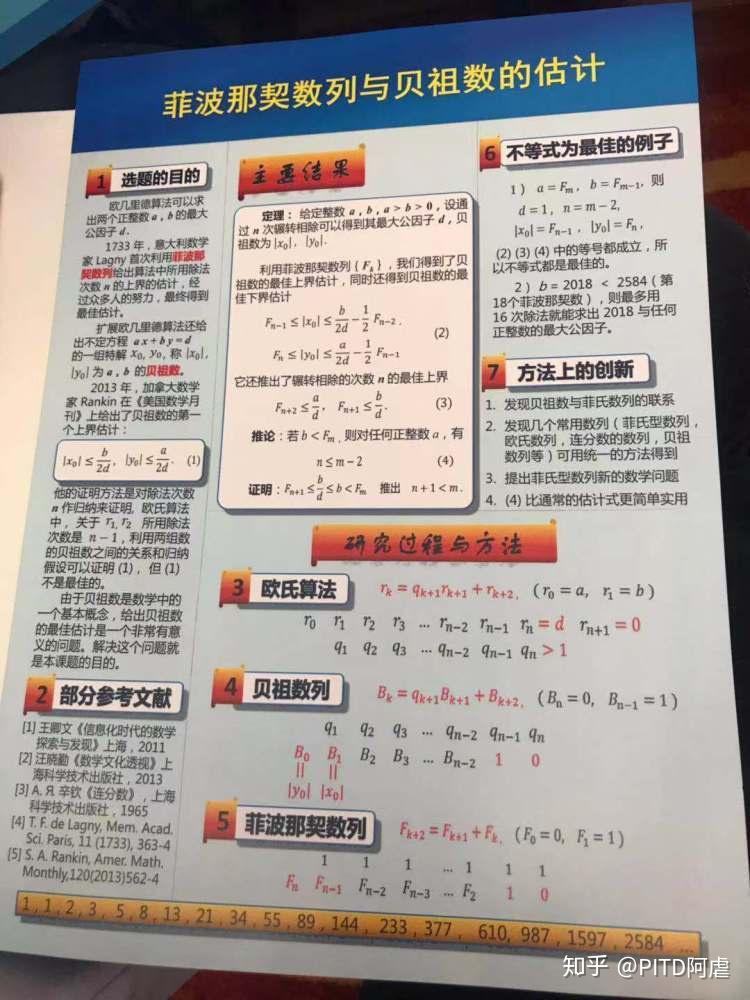 菲波那契数列与贝祖数的估计
1 选题的目的
欧几里德算法可以求
出两个正整数 a , b 的最大
公因子 d .
1733 年，意大利数学
家 Lagny 首次利用菲波那
契数列给出算法中所用除法
次数 n 的上界的估计，经
过众多人的努力，最终得到
最佳估计。
扩展欧几里德算法还给
出不定方程 ax + by = d
的一组特解 x₀, y₀, 称 |x₀|,
|y₀| 为 a , b 的贝祖数。
2013 年，加拿大数学
家 Rankin 在《美国数学月
刊》上给出了贝祖数的第一
个上界估计：
|x₀| ≤ b/2d , |y₀| ≤ a/2d . (1)
他的证明方法是对除法次数
n 作归纳来证明, 欧氏算法
中，关于 r₁, r₂ 所用除法
次数是 n − 1，利用两组数
的贝祖数之间的关系和归纳
假设可以证明 (1)，但 (1)
不是最佳的。
由于贝祖数是数学中的
一个基本概念，给出贝祖数
的最佳估计是一个非常有意
义的问题。解决这个问题就
是本课题的目的。
2 部分参考文献
[1] 王卿文《信息化时代的数学
探索与发现》上海，2011
[2] 汪晓勤《数学文化透视》上
海科学技术出版社，2013
[3] А. Я. 辛钦《连分数》，上海
科学技术出版社，1965
[4] T. F. de Lagny, Mem. Acad.
Sci. Paris, 11 (1733), 363-4
[5] S. A. Rankin, Amer. Math.
Monthly,120(2013)562-4
主要结果
定理： 给定整数 a , b , a > b > 0，设通
过 n 次辗转相除可以得到其最大公因子 d，贝
祖数为 |x₀|，|y₀|.
利用菲波那契数列 { Fₖ }，我们得到了贝
祖数的最佳上界估计，同时还得到贝祖数的最
佳下界估计
Fₙ₋₁ ≤ |x₀| ≤ b/2d − 1/2 Fₙ₋₂ .
(2)
Fₙ ≤ |y₀| ≤ a/2d − 1/2 Fₙ₋₁
它还推出了辗转相除的次数 n 的最佳上界
Fₙ₊₂ ≤ a/d , Fₙ₊₁ ≤ b/d . (3)
推论：若 b < Fₘ , 则对任何正整数 a , 有
n ≤ m − 2 (4)
证明：Fₙ₊₁ ≤ b/d ≤ b < Fₘ 推出 n + 1 < m .
6 不等式为最佳的例子
1） a = Fₘ , b = Fₘ₋₁, 则
d = 1 , n = m − 2,
|x₀| = Fₙ₋₁ , |y₀| = Fₙ ,
(2) (3) (4) 中的等号都成立，所
以不等式都是最佳的。
2）b = 2018 < 2584（第
18个菲波那契数），则最多用
16 次除法就能求出 2018 与任何
正整数的最大公因子。
7 方法上的创新
1. 发现贝祖数与菲氏数列的联系
2. 发现几个常用数列（菲氏型数列，
欧氏数列，连分数的数列，贝祖
数列等）可用统一的方法得到
3. 提出菲氏型数列新的数学问题
4. (4) 比通常的估计式更简单实用
研究过程与方法
3 欧氏算法 rₖ = qₖ₊₁rₖ₊₁ + rₖ₊₂，( r₀ = a, r₁ = b )
r₀ r₁ r₂ r₃ … rₙ₋₂ rₙ₋₁ rₙ = d rₙ₊₁ = 0
q₁ q₂ q₃ … qₙ₋₂ qₙ₋₁ qₙ > 1
4 贝祖数列 Bₖ = qₖ₊₁Bₖ₊₁ + Bₖ₊₂，( Bₙ = 0, Bₙ₋₁ = 1 )
q₁ q₂ q₃ … qₙ₋₂ qₙ₋₁ qₙ
B₀ B₁ B₂ B₃ … Bₙ₋₂ 1 0
|| ||
|y₀| |x₀|
5 菲波那契数列 Fₖ₊₂ = Fₖ₊₁ + Fₖ，( F₀ = 0, F₁ = 1 )
1 1 1 … 1 1 1
Fₙ Fₙ₋₁ Fₙ₋₂ Fₙ₋₃ … F₂ 1 0
1 , 1 , 2 , 3 , 5 , 8 , 13 , 21 , 34 , 55 , 89 , 144 , 233 , 377 , 610, 987 , 1597 , 2584 …
知乎 @PITD阿虐